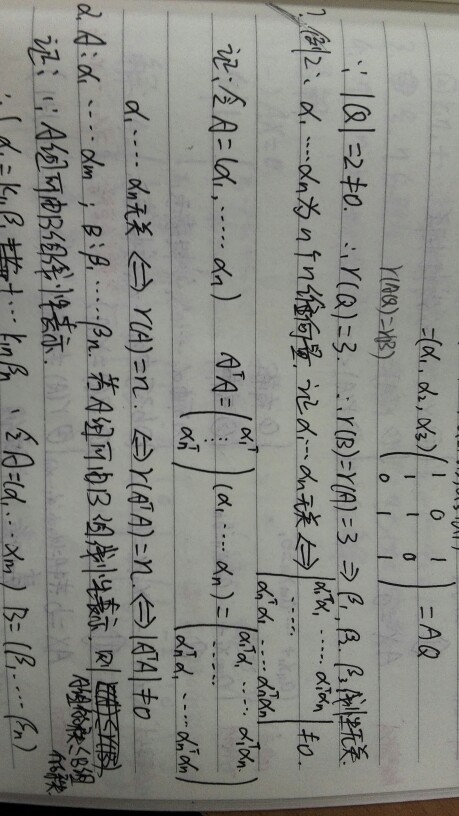 =(α₁, α₂, α₃) ( 1 0 1
1 1 0
0 1 1 ) = AQ
r(AQ)=r(B)
∵ |Q|=2≠0. ∴ r(Q)=3. ∴ r(B)=r(A)=3 ⇒ β₁, β₂, β₃线性无关.
例2: α₁……αn为n个n维向量, 证α₁…αn无关 ⇔ | α₁ᵀα₁ …… α₁ᵀαn
……
αnᵀα₁ …… αnᵀαn | ≠0.
证: 令A=(α₁, …… αn) AᵀA= ( α₁ᵀ
⋮
αnᵀ ) (α₁, …… αn) = ( α₁ᵀα₁ …… α₁ᵀαn
……
αnᵀα₁ …… αnᵀαn )
α₁……αn无关 ⇔ r(A)=n. ⇔ r(AᵀA)=n. ⇔ |AᵀA|≠0
2. A: α₁……αm; B: β₁……βn. 若A组可由B组线性表示, 则
A组的秩≤B组的秩
证: ∵ A组可由B组线性表示.
∴ { α₁=k₁₁β₁+… k₁nβn ∴ 令A=(α₁…αm) B=(β₁, … βn)